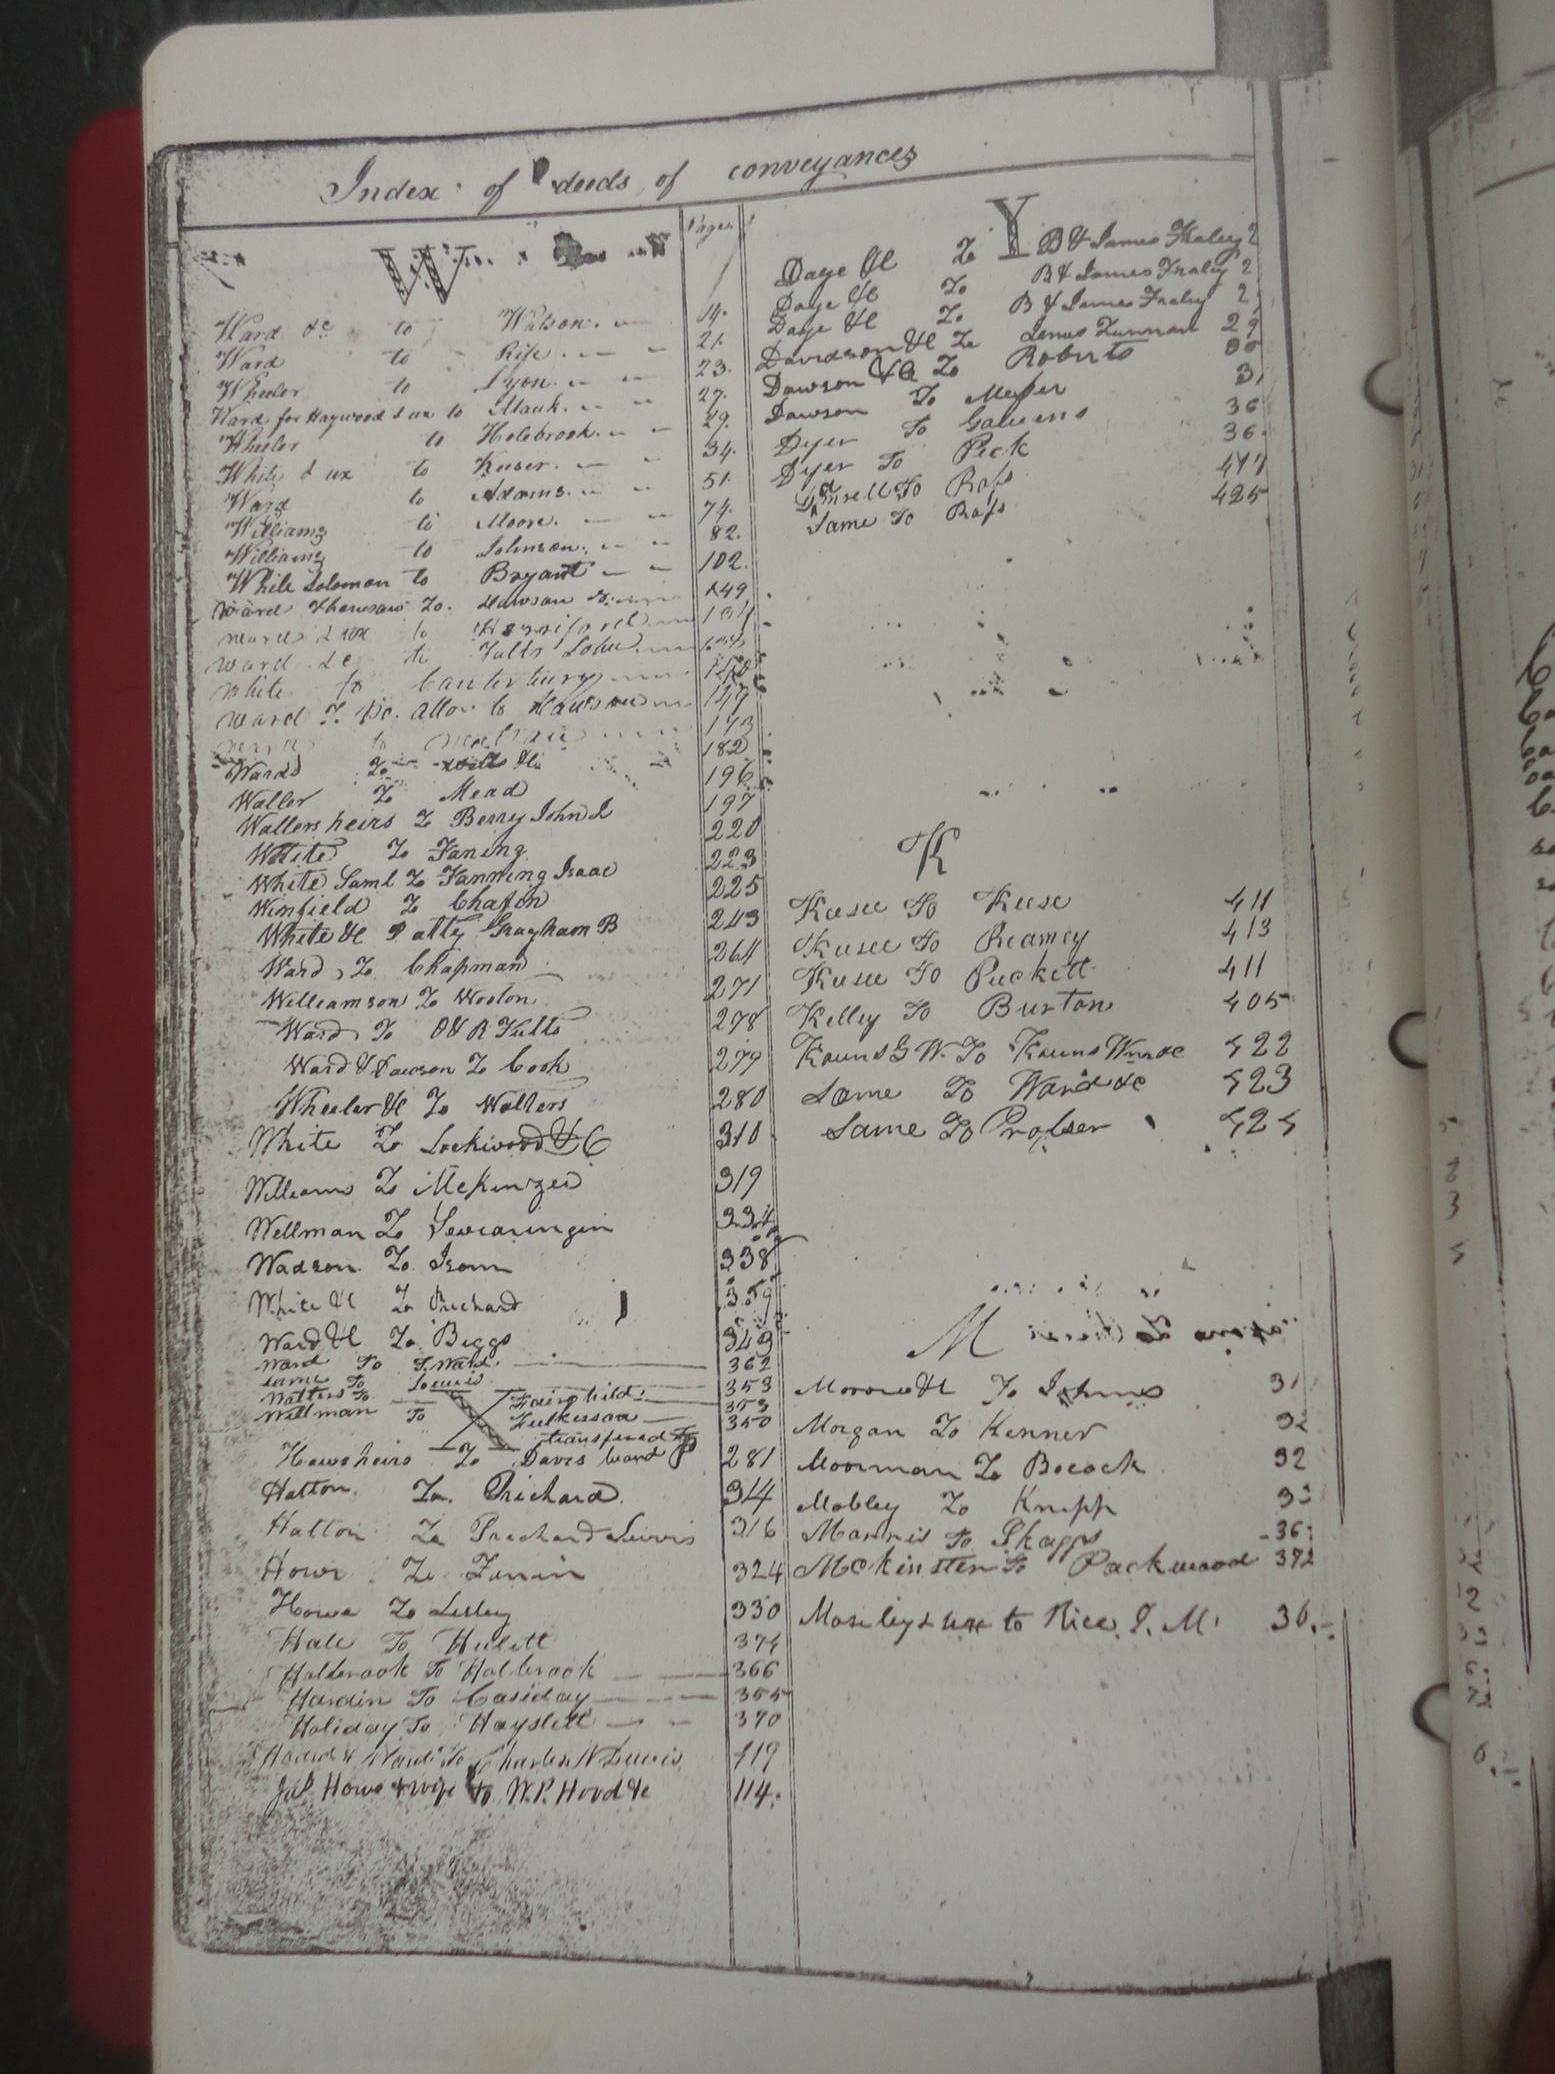 Index of deeds of conveyances
Pages
W
Ward &c to Watson. 14.
Ward to Rife. 21.
Wheeler to Lyon. 23.
Ward for Haywood & ux to Mauk. 27.
Wheeler to Holebrook. 29.
White & ux to Keeser. 34.
Ward to Adams. 51.
Williams to Moore. 74.
Williams to Johnson. 82.
White Solomon to Bryant 102.
Ward Thomson To. Dawson 149
Ward & ux to Hereford
Ward &c to Fults John
White to Canterbury
Ward T. po. Allor to Dawson 147
to 173
Wards To Wells &c 182
Waller To Mead 196
Wallers heirs To Berry John J 197
White To Faning 220
White Saml To Fanning Isaac 223
Winfield To Chafin 225
White &c Patty Grayham B 243
Ward To Chapman 264
Williamson To Wooton 271
Ward To O & R Fults 278
Ward & Dawson To Cook 279
Wheeler &c To Walters 280
White To Lockwood & C 310
Williams To McKinzee 319
Wellman To Swearingin 334
Wadson To Isom 338
White &c To Prichard 359
Ward &c To Biggs 343
Ward To T. Ward. 362
Same To Lewis 353
Watters To Fairchild 353
Wellman To Fulkerson 350
transfered to
Hews heirs To Davis Ward 281
Hatton. To. Prichard. 314
Hatton To Prichard Lewis 316
Howe To 324
Howe To Lesley 330
Hale To Hulett 374
Holdbrook To Holbrook 366
Hardin To Casiday 355
Holiday To Hayslett 370
Hoard & Ward To Charles N Lewis 419
Jas Howe & wife to W. P. Hood &c 114.
Y
Daye &c To B & James Fraley 2
Daye &c To B & James Fraley 2
Daye &c To B & James Fraley 2
Davidson &c To 29
Dawson &c To Roberts
Dawson To Messer 3
Dyer To Galuens 36
Dyer To Peck 36
To Ross 417
Same To Ross 425
K
Keesee To Keese 411
Keesee To Reamey 413
Keesee To Puckett 411
Kelley To Burton 405
Kouns G W. To Kouns Wm &c 422
Same To Ward &c 423
Same To Prolser 424
M
Moore &c To Johns 31
Morgan To Kenner 32
Moorman To Bocock 32
Mobley To Knipp 33
Morris To Skaggs 36
McKinster To Packwood 372
Moseley & ux to Rice. J. M. 36